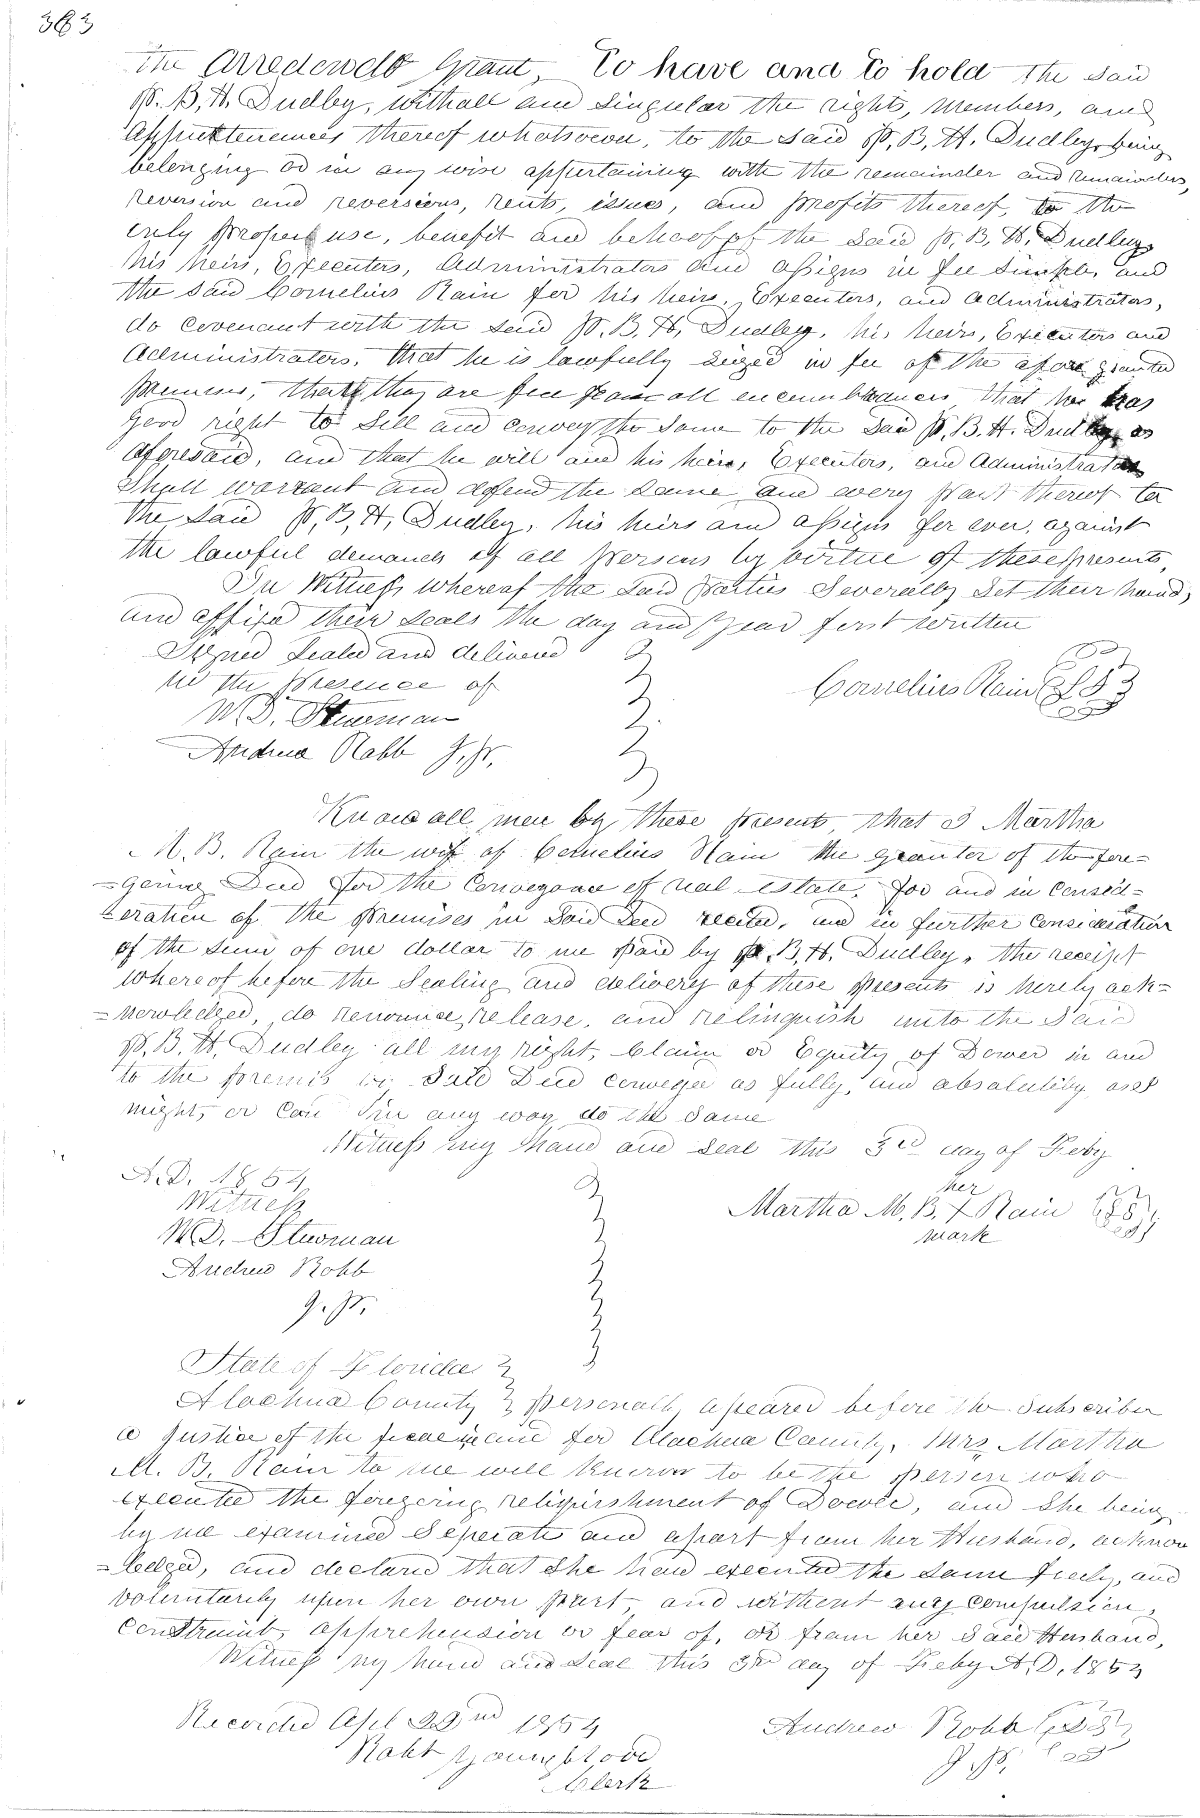 363
the Arredondo Grant, To have and to hold the said
P. B. H. Dudley, withall and singular the rights, members, and
appurtenances thereof whatsoever, to the said P. B. H. Dudley, being
belonging or in any wise appertaining with the remainder and remainders,
reversion and reversions, rents, issues, and profits thereof, to the
only proper use, benefit and behoof of the said P. B. H. Dudley
his heirs, Executers, Administrators and assigns in fee simple, and
the said Cornelius Rain for his heirs, Executers, and administrators,
do covenant with the said P. B. H. Dudley, his heirs, Executers and
Administrators, that he is lawfully seized in fee of the afore granted
premises, that they are free from all encumbrances, that he has
good right to sell and convey the same to the said P. B. H. Dudley as
aforesaid, and that he will and his heirs, Executors, and administrators
shall warrant and defend the same and every part thereof to
the said P, B, H, Dudley, his heirs and assigns for ever, against
the lawful demands of all persons by virtue of these presents,
In Witness whereof the said parties severally set their hands,
and affixed their seals the day and year first written
Signed sealed and delivered
in the presence of
Cornelius Rain
W. D. Stewman
Andrew Robb J. P.
Know all men by these presents, that I Martha
M. B. Rain the wife of Cornelius Rain the granter of the fore=
=going Deed for the conveyance of real estate, for and in consid=
=eration of the premises in said Deed recited, and in further consideration
of the sum of one dollar to me paid by P. B, H. Dudley, the receipt
whereof before the sealing and delivery of these presents is herely ack=
=nowledged, do renounce, release, and relinquish unto the said
P. B. H. Dudley all my right, Claim or Equity of Dower in and
to the premis by said Deed conveyed as fully, and absolutely as I
might, or can in any way do the same
Witness my hand and seal this 3rd day of Feby
A. D. 1854
Witness
her
Martha M. B. X Rain
mark
W D. Stewman
Andrew Robb
J. P.
State of Florida
Alachua County Personally apeared before the Subscriber
a Justice of the peace in and for Alachua County, Mrs Martha
M. B. Rain to me well known to be the person who
executed the foregoing relinquishment of Dower, and she being
by me examined seperate and apart from her Husband, acknow
=ledged, and declared that she had executed the same freely, and
voluntarily upon her own part, and without any compulsion,
constraint, apprehension or fear of, or from her said Husband,
Witness my hand and seal this 3rd day of Feby A, D, 1854
Recorded Apl 22nd 1854
Andrew Robb
J. P.
Robt Youngblood
Clerk